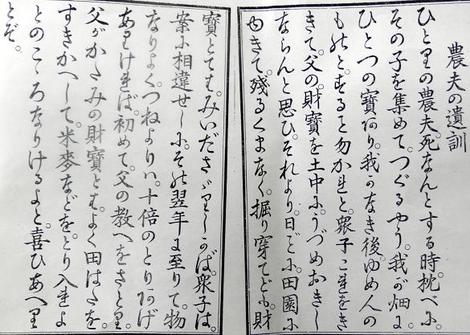 農夫の遺訓
ひとりの農夫死なんとする時。枕べに
その子を集めて。つぐるやう。我が畑に
ひとつの寳あり。我がなき後ゆめ人の
ものとすること勿かれと。衆子これをき
きて。父の財寳を土中にうづめおきし
ならんと思ひ。それより日ごとに田園に
ゆきて。殘るくまなく。掘り穿てども。財
寳とても。みいださゞりしかば。衆子は。
案に相違せしに。その翌年に至りて。物
なりよく。つねよりは。十倍のとりあげ
ありければ。初めて。父の教へをさとり。
父がかたみの財寳とは。よく田はたを
すきかへして。米麥などを。とり入れよ
とのこゝろなりけるよと。喜ひあへり
とぞ。